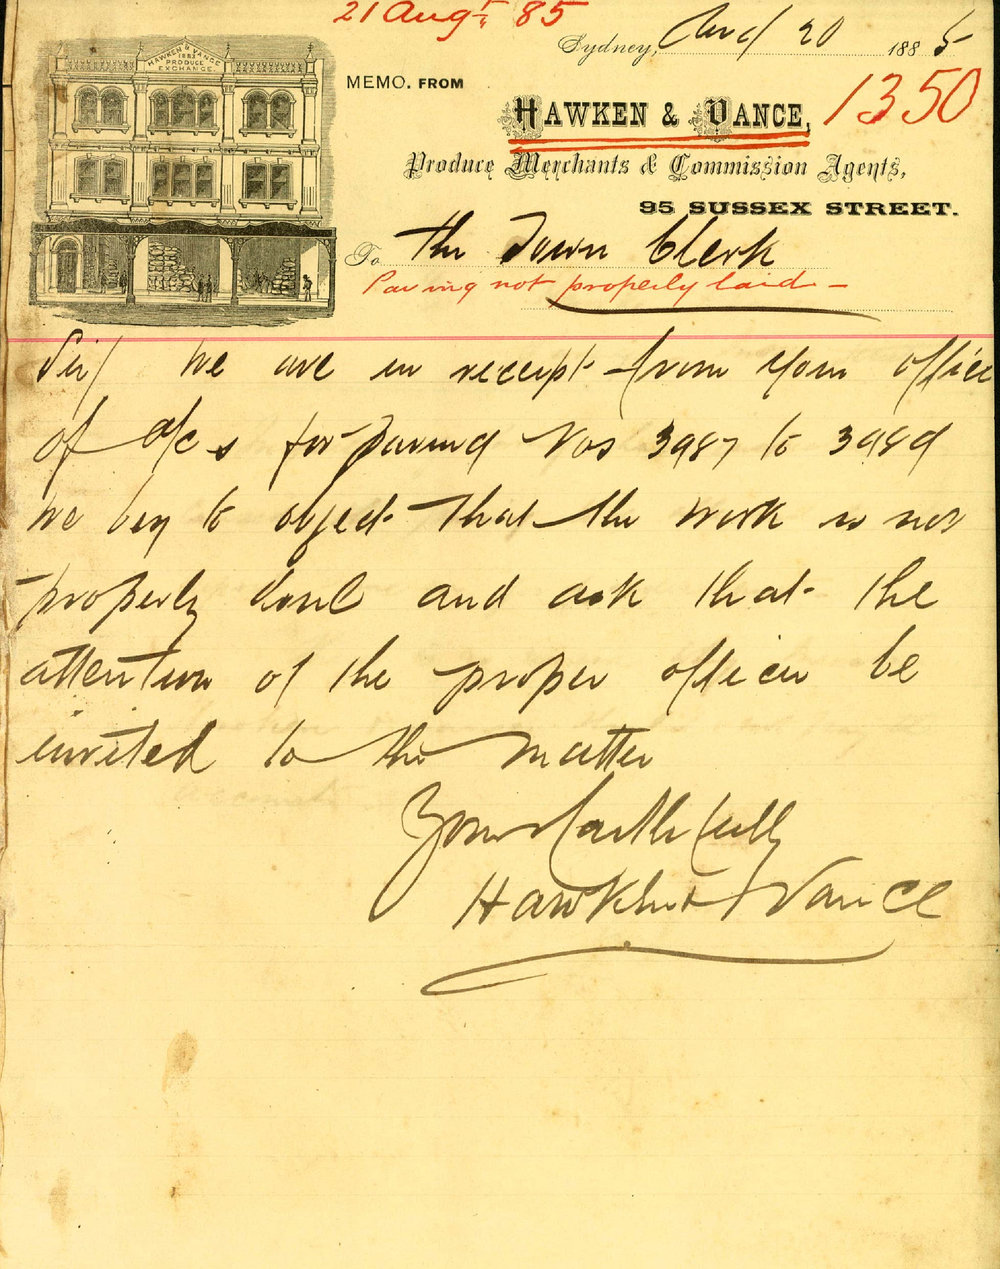 21 Augt 85
Sydney, Aug 20 1885
HAWKEN & VANCE
1882
PRODUCE
EXCHANGE
MEMO. FROM
HAWKEN & VANCE,
1350
Produce Merchants & Commission Agents,
95 SUSSEX STREET.
To The Town Clerk
Paving not properly laid -
Sir/ We are in receipt from your office
of a/cs for paving Nos 3987 to 3989
We beg to object that the work is not
properly done and ask that the
attention of the proper officer be
invited to the matter
Yours faithfully
Hawken & Vance